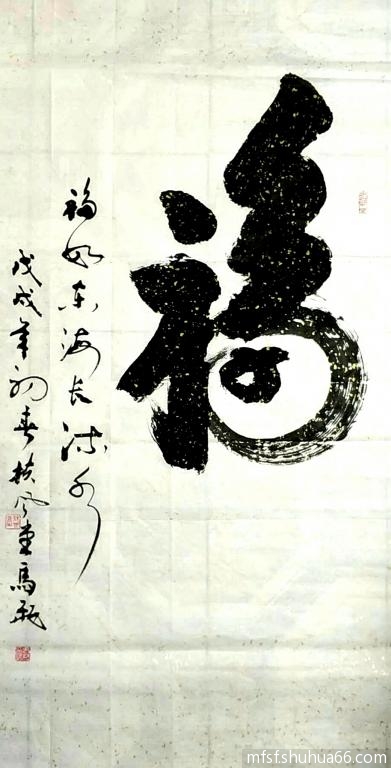 福
福如东海长流水
戊戌年初春扶风堂馬
mfsf.shuhua66.com